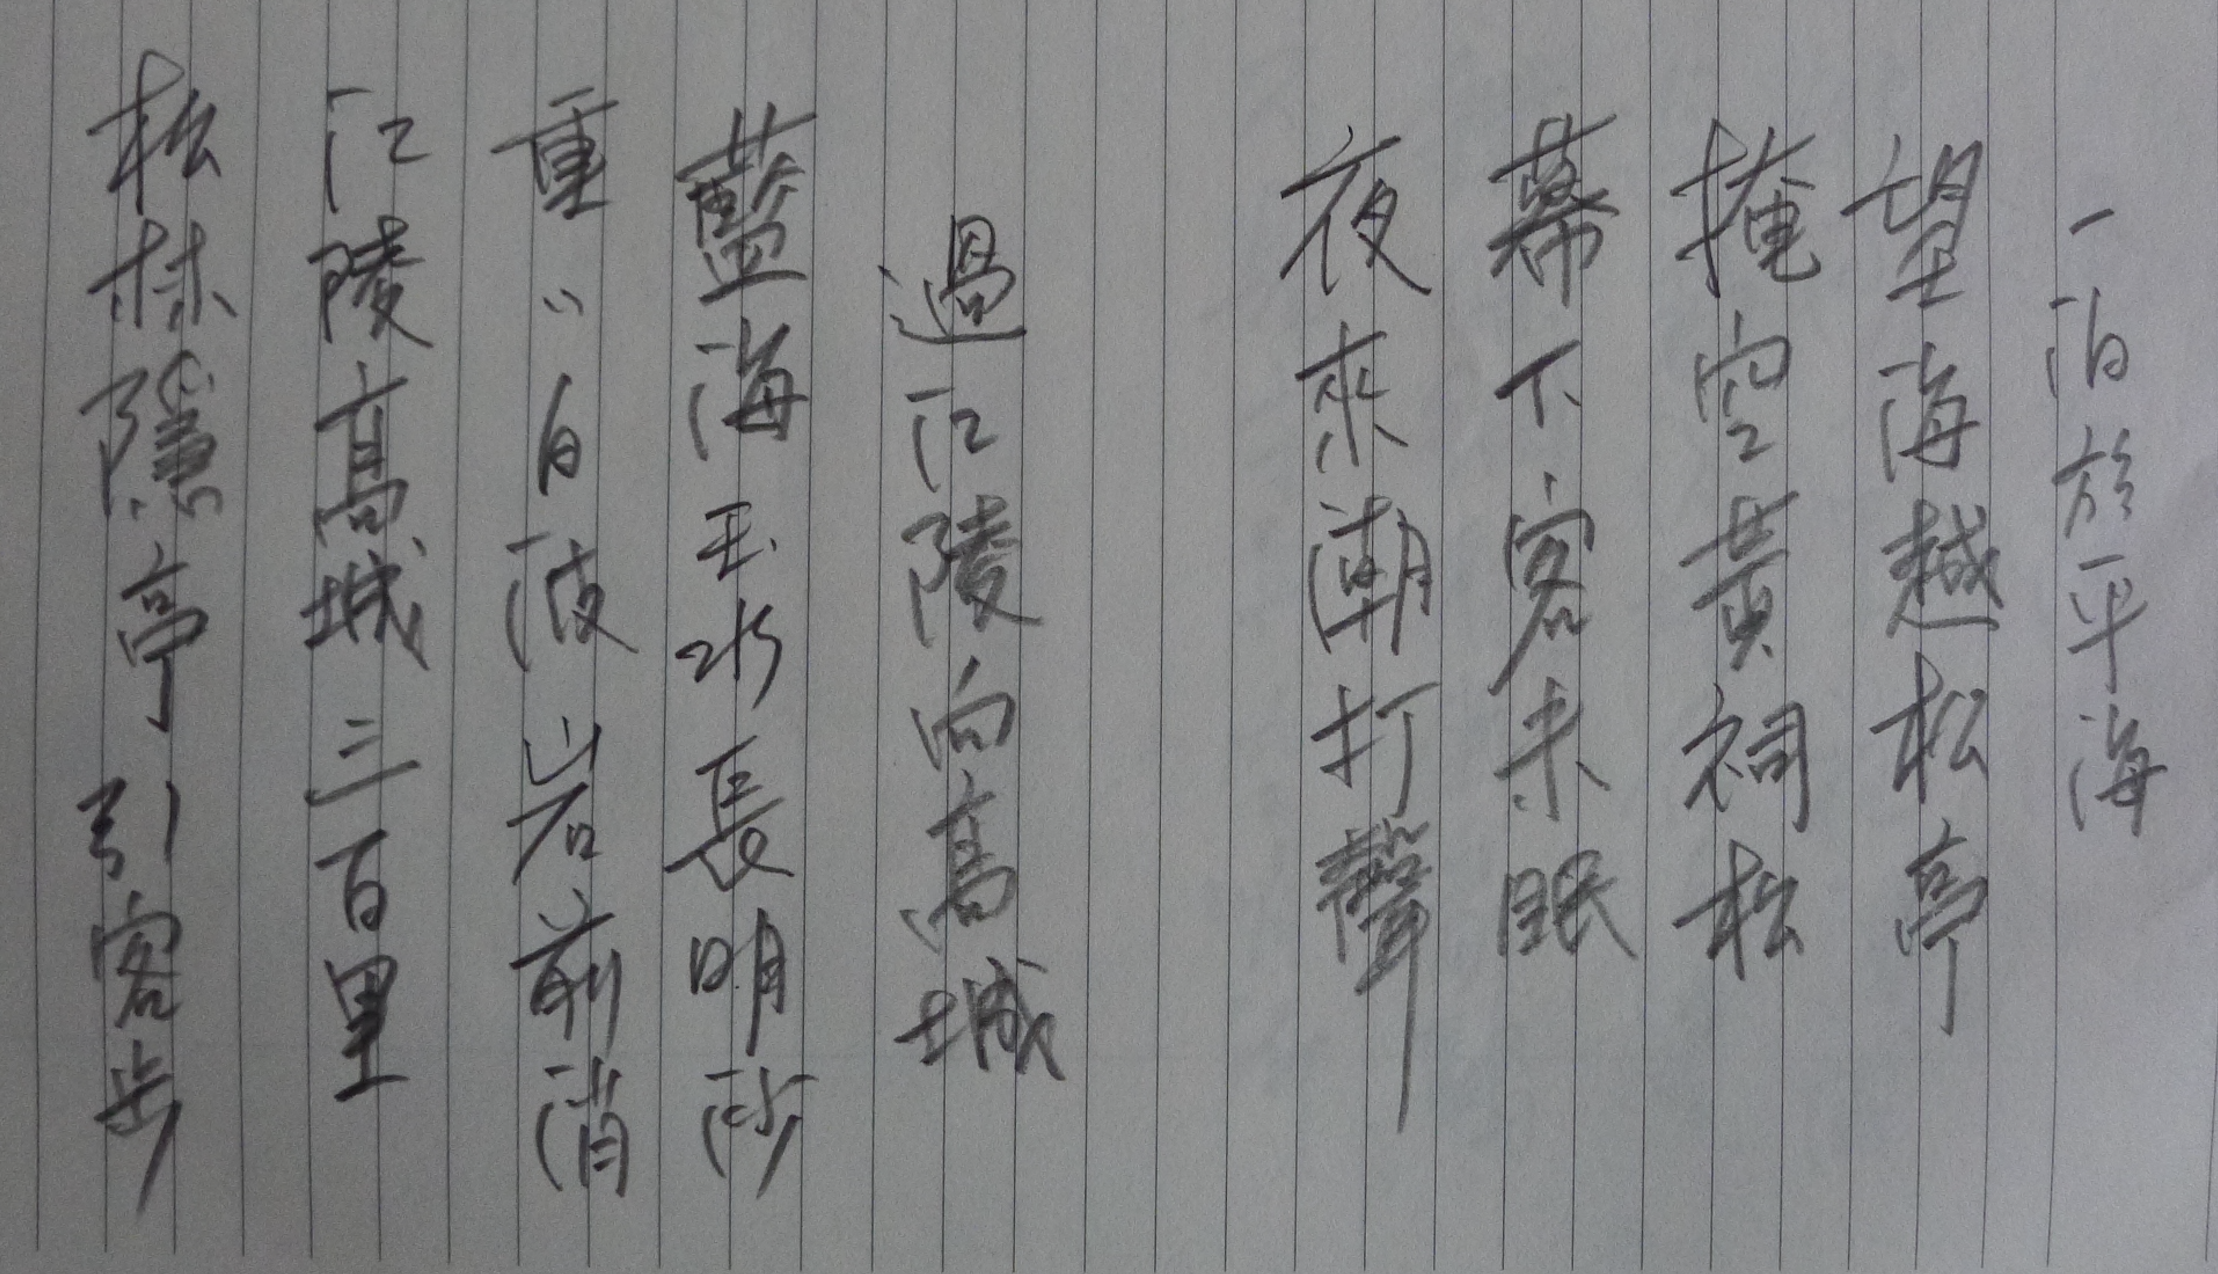 一泊於平海
望海越松亭
掩空黃祠松
幕下客未眠
夜來潮打聲
過江陵向高城
藍海玉水長明沙
重〃白波岩前消
江陵高城三百里
松林隱亭引客步